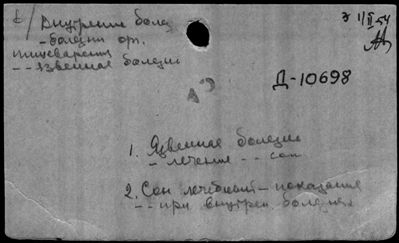 Внутренн болез
- болезни орг.
пищеварения
- - язвенная болезнь
э 1/II 54
Д-10698
1. Язвенная болезнь
- лечение - - сон
2. Сон лечебный - показания
- - при внутрен. болезнях